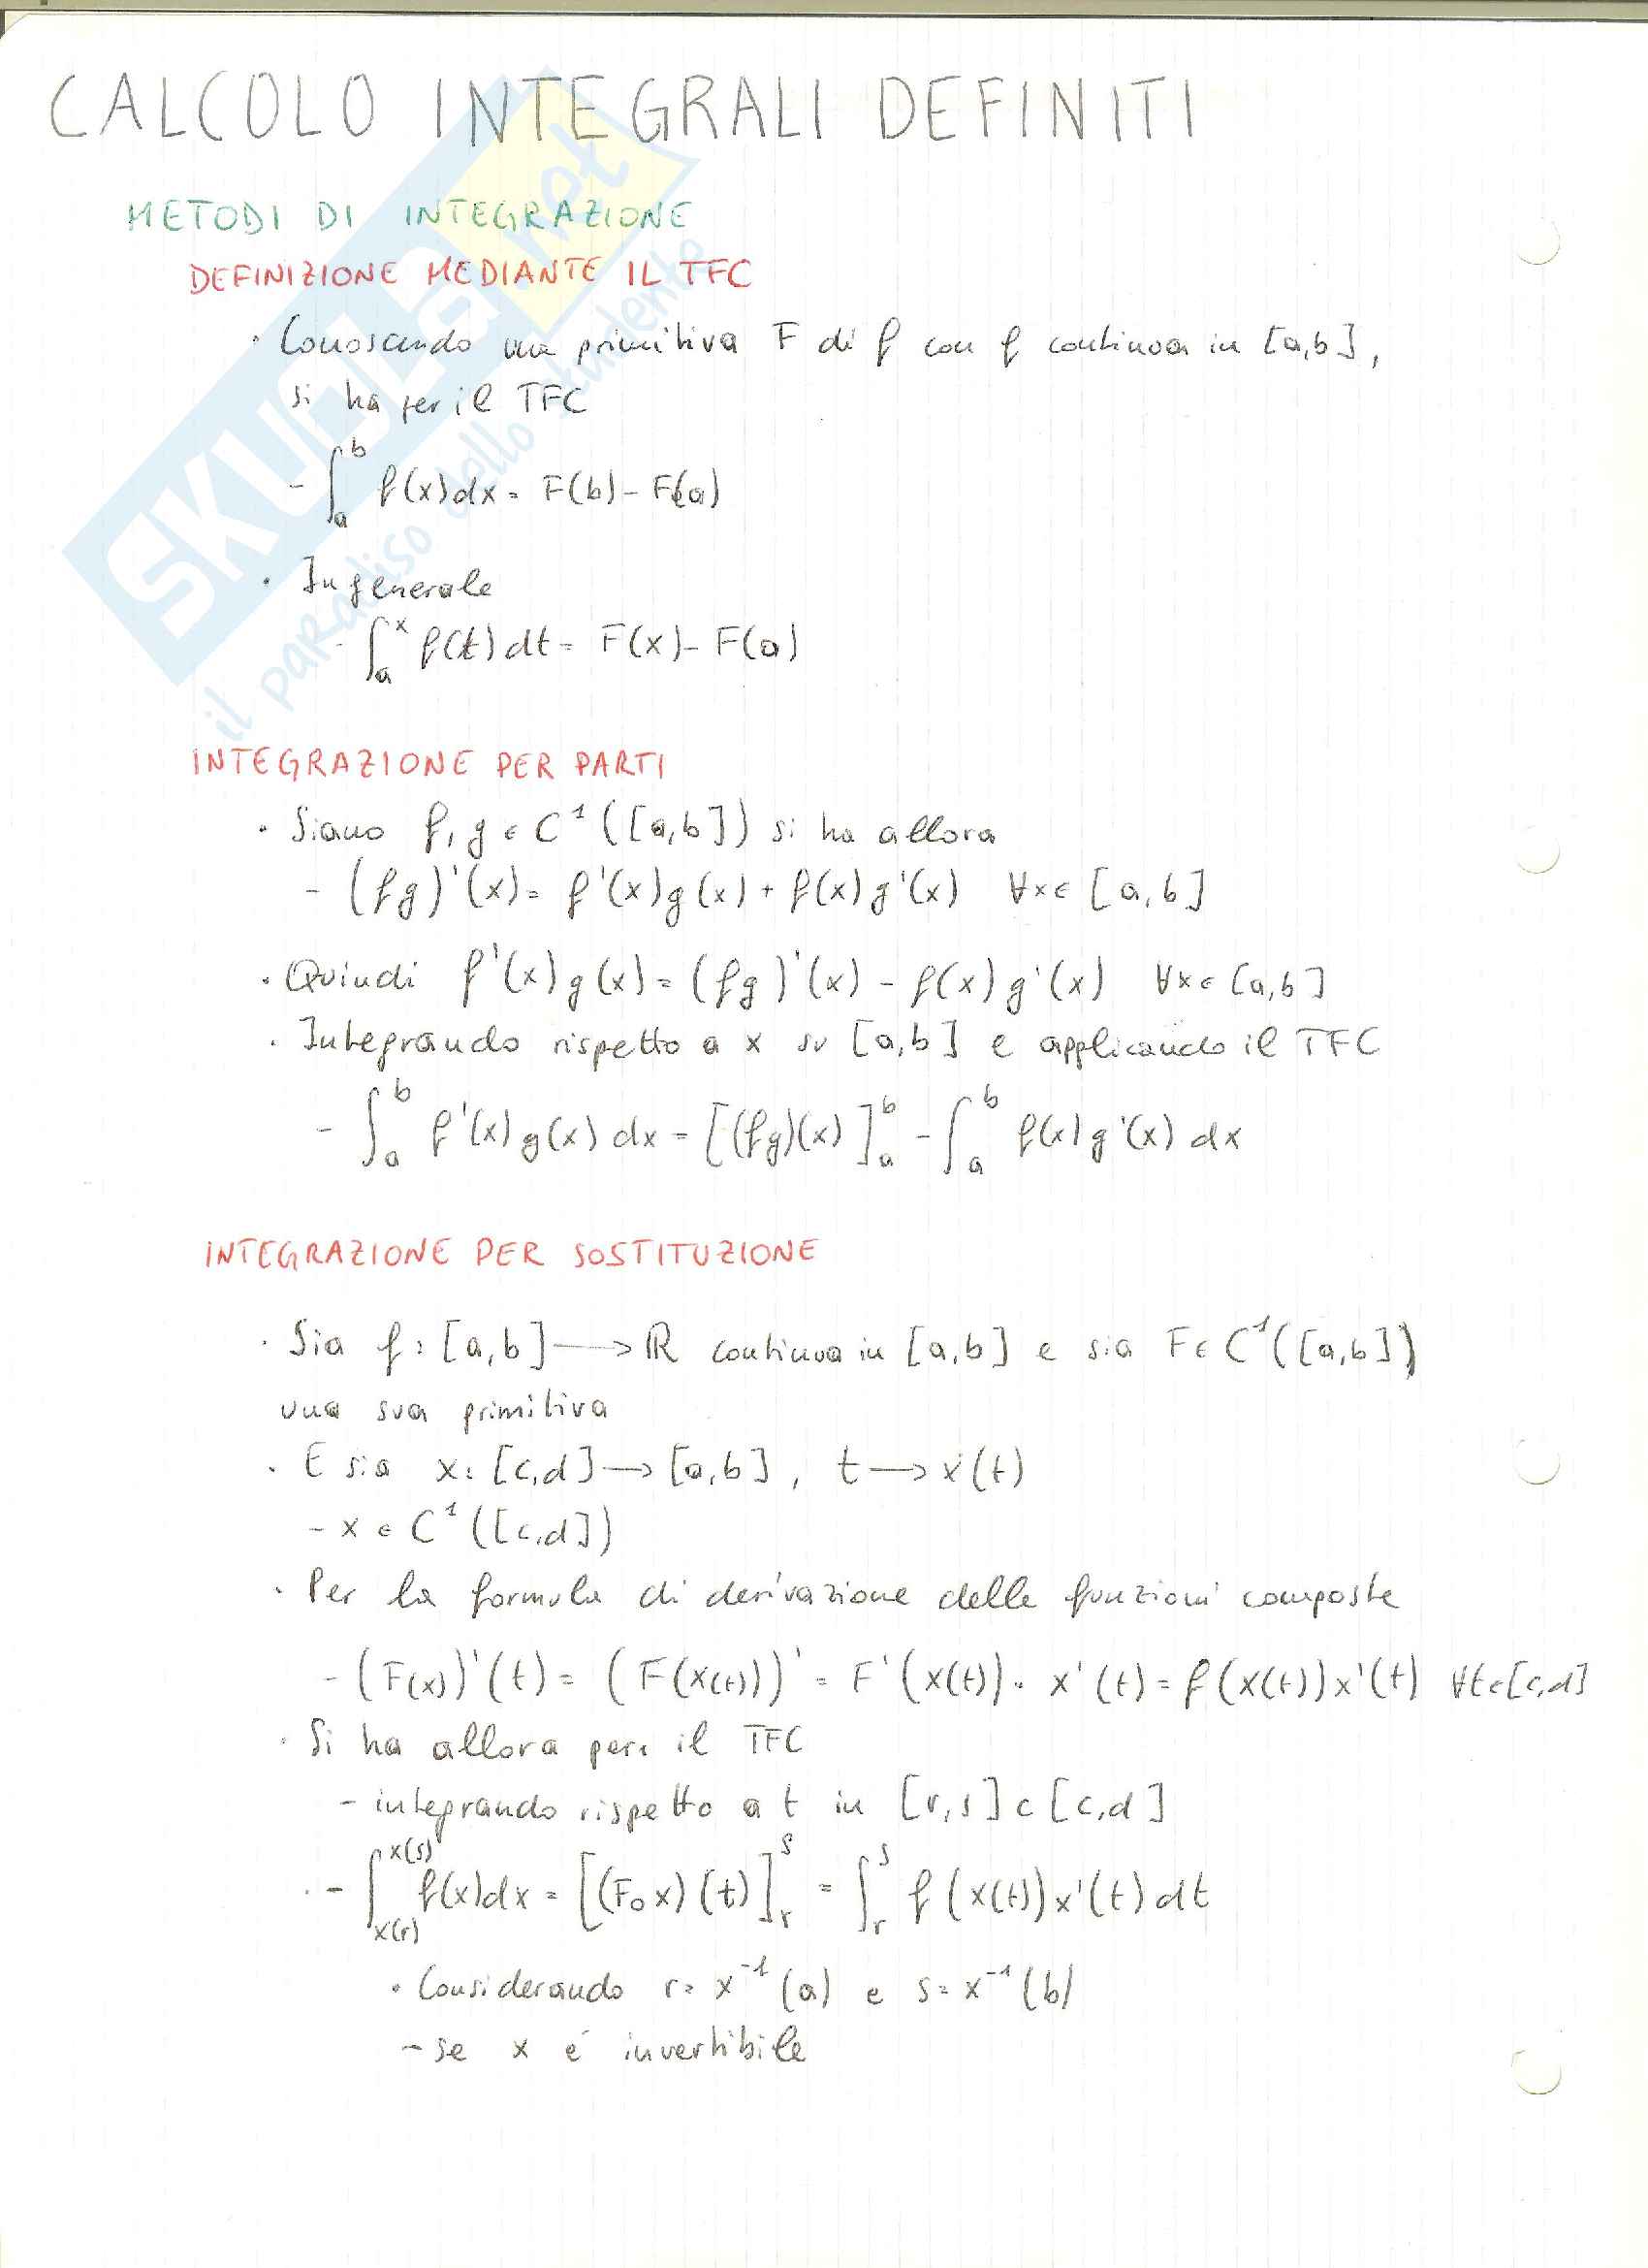 CALCOLO INTEGRALI DEFINITI
METODI DI INTEGRAZIONE
DEFINIZIONE MEDIANTE IL TFC
· Conoscendo una primitiva F di f con f continua in [a,b],
si ha per il TFC
- ∫_a^b f(x)dx = F(b) - F(a)
· In generale
- ∫_a^x f(t) dt = F(x) - F(a)
INTEGRAZIONE PER PARTI
· Siano f, g ∈ C¹([a,b]) si ha allora
- (fg)'(x) = f'(x)g(x) + f(x)g'(x) ∀x∈[a,b]
· Quindi f'(x)g(x) = (fg)'(x) - f(x)g'(x) ∀x∈[a,b]
· Integrando rispetto a x su [a,b] e applicando il TFC
- ∫_a^b f'(x)g(x) dx = [(fg)(x)]_a^b - ∫_a^b f(x)g'(x) dx
INTEGRAZIONE PER SOSTITUZIONE
· Sia f: [a,b] → ℝ continua in [a,b] e sia F ∈ C¹([a,b])
una sua primitiva
· E sia x: [c,d] → [a,b], t → x(t)
- x ∈ C¹([c,d])
· Per la formula di derivazione delle funzioni composte
- (F(x))'(t) = (F(x(t)))' = F'(x(t)) · x'(t) = f(x(t))x'(t) ∀t∈[c,d]
· Si ha allora per il TFC
- integrando rispetto a t in [r,s] ⊂ [c,d]
- ∫_{x(r)}^{x(s)} f(x)dx = [(F∘x)(t)]_r^s = ∫_r^s f(x(t))x'(t)dt
· Considerando r = x⁻¹(a) e s = x⁻¹(b)
- se x é invertibile
SKUOLA.net
il paradiso dello studente